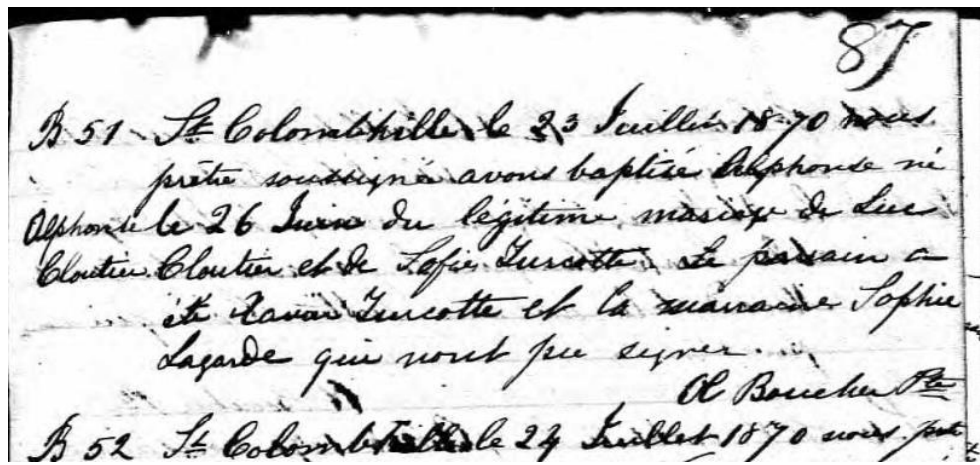 87
B 51 St Colombkille le 23 Juillet 1870 nous
prêtre soussigné avons baptisé Alphonse né
Alphonse le 26 Juin du légitime mariage de Luc
Cloutier Cloutier et de Sofie Turcotte. Le parrain a
été Xavier Turcotte et la marraine Sophie
Lagarde qui nont pu signer.
Boucher Ptre
B 52 St Colombkille le 24 Juillet 1870 nous